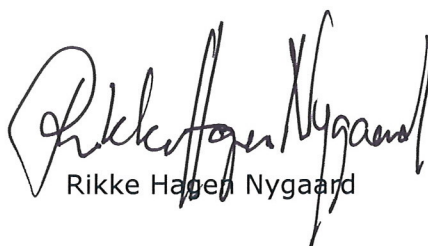 Rikke Hagen Nygaard
Rikke Hagen Nygaard